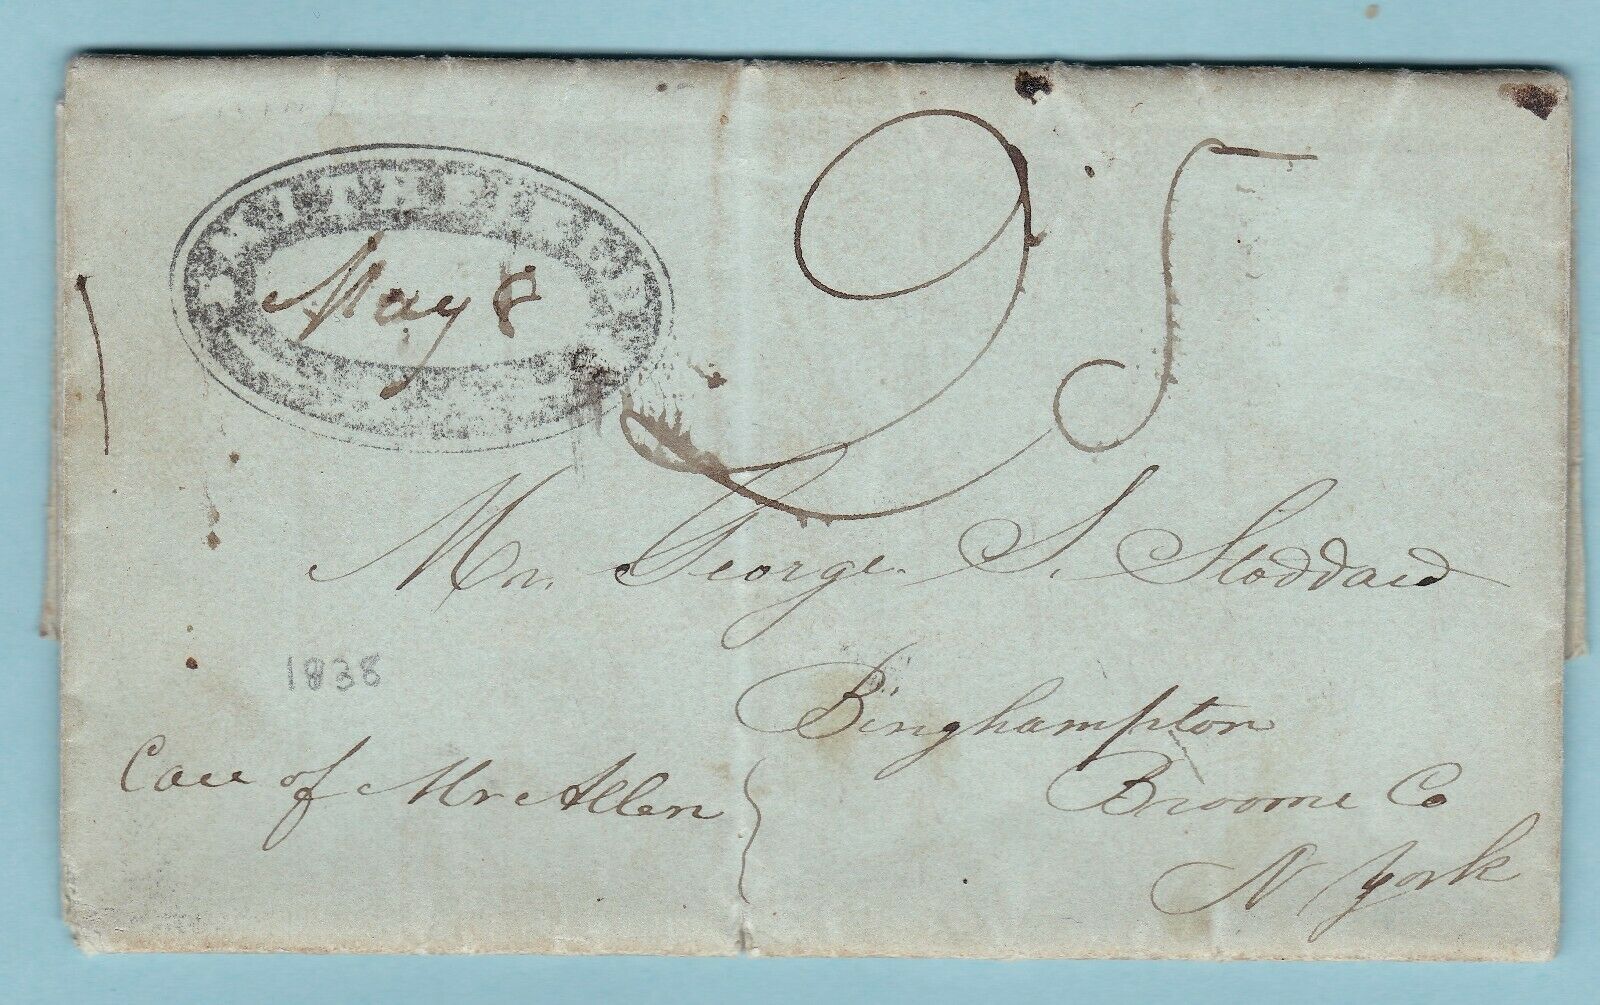 May 8
25
Mr. George S. Stoddard
1838
Binghampton
Care of Mr Allen
Broome Co
N York